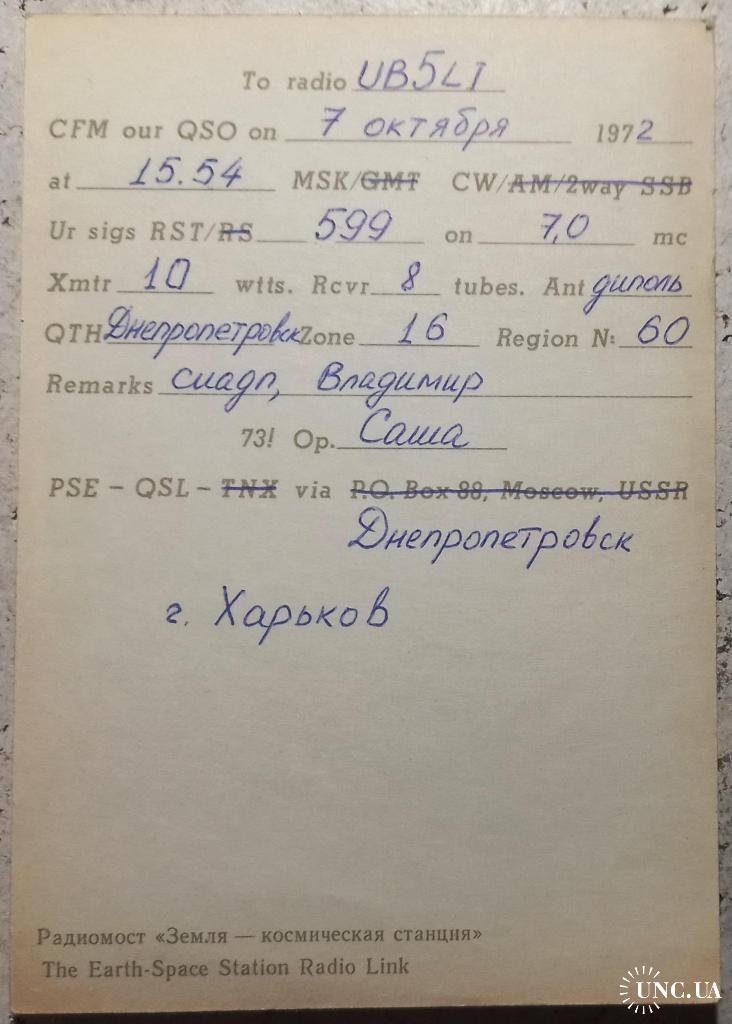 To radio UB5LI
CFM our QSO on 7 октября 1972
at 15.54 MSK/GMT CW/AM/2way SSB
Ur sigs RST/RS 599 on 7,0 mc
Xmtr 10 wtts. Rcvr 8 tubes. Ant диполь
QTH Днепропетровск Zone 16 Region N: 60
Remarks Владимир
73! Op. Саша
PSE – QSL – TNX via P.O. Box 88, Moscow, USSR
Днепропетровск
г. Харьков
Радиомост «Земля — космическая станция»
The Earth-Space Station Radio Link
UNC.UA